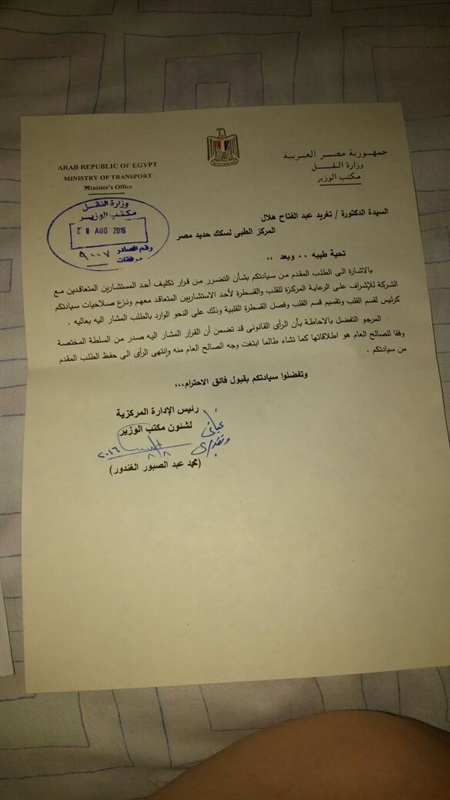 جمهورية مصر العربية
وزارة النقل
مكتب الوزير
ARAB REPUBLIC OF EGYPT
MINISTRY OF TRANSPORT
Minister's Office
وزارة النقل
مكتب الوزير
8 AUG 2016
رقم الصادر
مرفقات
السيدة الدكتورة / تغريد عبد الفتاح هلال
المركز الطبى لسكك حديد مصر
تحية طيبه ٠٠ وبعد ،،
بالاشارة الى الطلب المقدم من سيادتكم بشأن التضرر من قرار تكليف أحد المستشارين المتعاقدين مع
الشركة للإشراف على الرعاية المركزة للقلب والقسطرة لأحد الاستشاريين المتعاقد معهم ونزع صلاحيات سيادتكم
كرئيس لقسم القلب وتقسيم قسم القلب وفصل القسطرة القلبية وذلك على النحو الوارد بالطلب المشار اليه بعاليه .
المرجو التفضل بالاحاطة بأن الرأى القانونى قد تضمن أن القرار المشار اليه صدر من السلطة المختصة
وفقا للصالح العام هو اطلاقاتها كما تشاء طالما ابتغت وجه الصالح العام منه وانتهى الرأى الى حفظ الطلب المقدم
من سيادتكم .
وتفضلوا سيادتكم بقبول فائق الاحترام،،،
رئيس الإدارة المركزية
لشئون مكتب الوزير
٨/٨ ٢٠١٦
(محمد عبد الصبور الغندور)